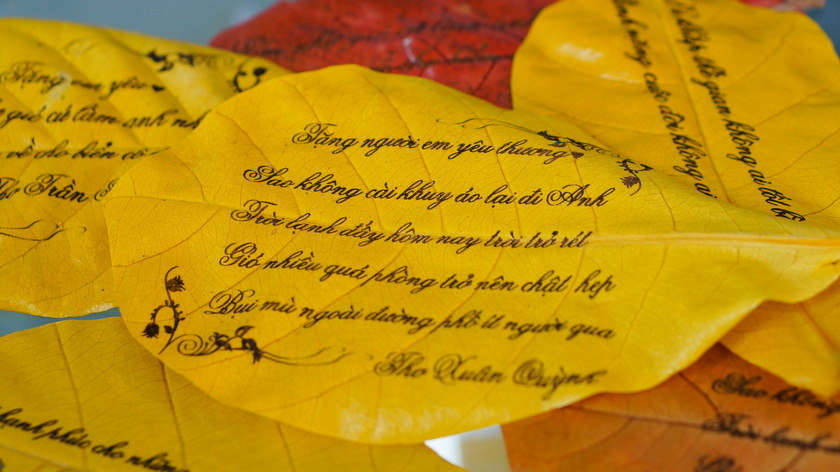 Tặng người em yêu thương
Sao không cài khuy áo lại đi Anh
Trời lạnh đấy hôm nay trời trở rét
Gió nhiều quá phòng trở nên chật hẹp
Bụi mù ngoài đường phố ít người qua
Thơ Xuân Quỳnh
Tặng em yêu
gió cứ làm anh
về cho biển
Thơ Trần
thời gian không ai
cuộc đời không
hạnh phúc cho
Sao không
Trời lạnh